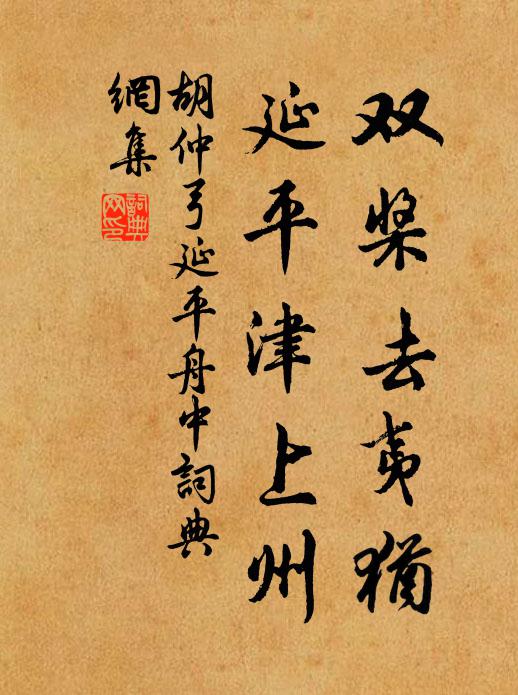 双桨去夷猶
延平津上州
胡仲弓延平舟中詞典
網集
詞典網印